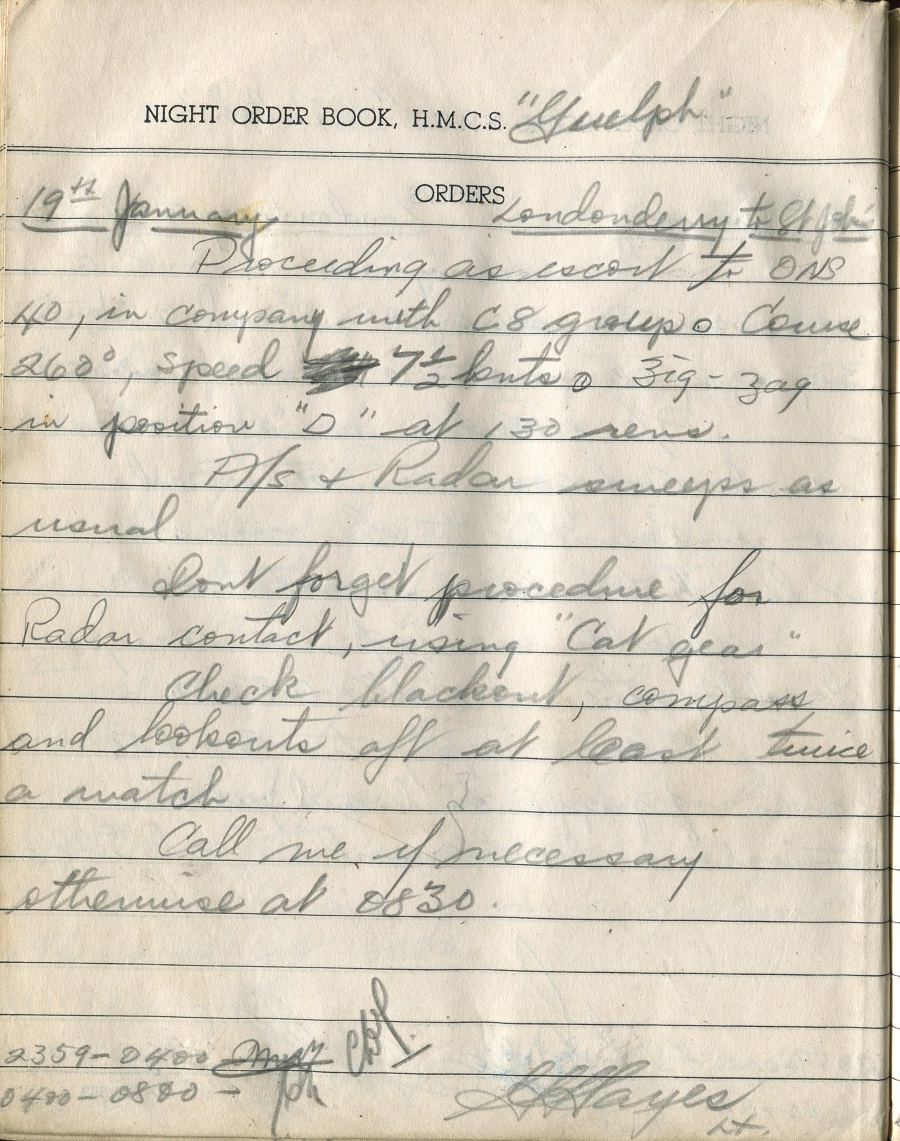 NIGHT ORDER BOOK, H.M.C.S. "Guelph"
ORDERS
19th January Londonderry to St John's
Proceeding as escort to ONS
40, in company with C8 group. Course
260°, speed 7½ knots. Zig-zag
in position "D" at 130 revs.
A/s & Radar sweeps as
usual.
Dont forget procedure for
Radar contact, using "Cat gear"
Check blackout, compass,
and lookouts aft at least twice
a watch
Call me if necessary
otherwise at 0830.
2359-0400
0400-0800 -
Hayes
Lt.